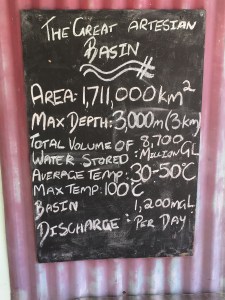 THE GREAT ARTESIAN
BASIN
AREA: 1,711,000km²
MAX DEPTH: 3,000m (3km)
TOTAL VOLUME OF 8,700
WATER STORED: MILLION GL
AVERAGE TEMP: 30-50°C
MAX TEMP: 100°C
BASIN 1,200 MGL
DISCHARGE: PER DAY